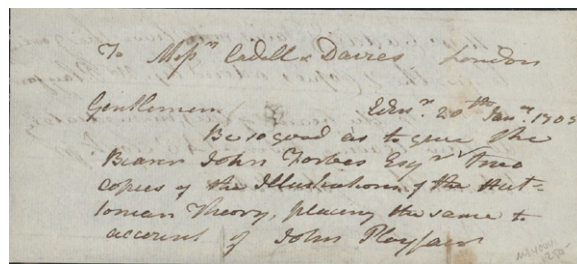 To Messrs Cadell & Davies London
Gentlemen Edinr. 20th Jany. 1803
Be so good as to give the
Bearer John Forbes Esqr. two
copies of the Illustrations of the Hut-
tonian Theory, placing the same to
account of John Playfair